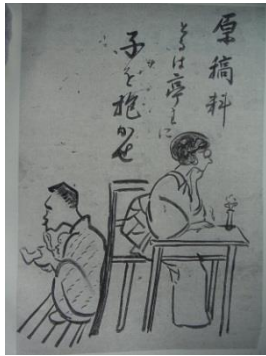 原稿料
とるは亭主に
子を抱かせ